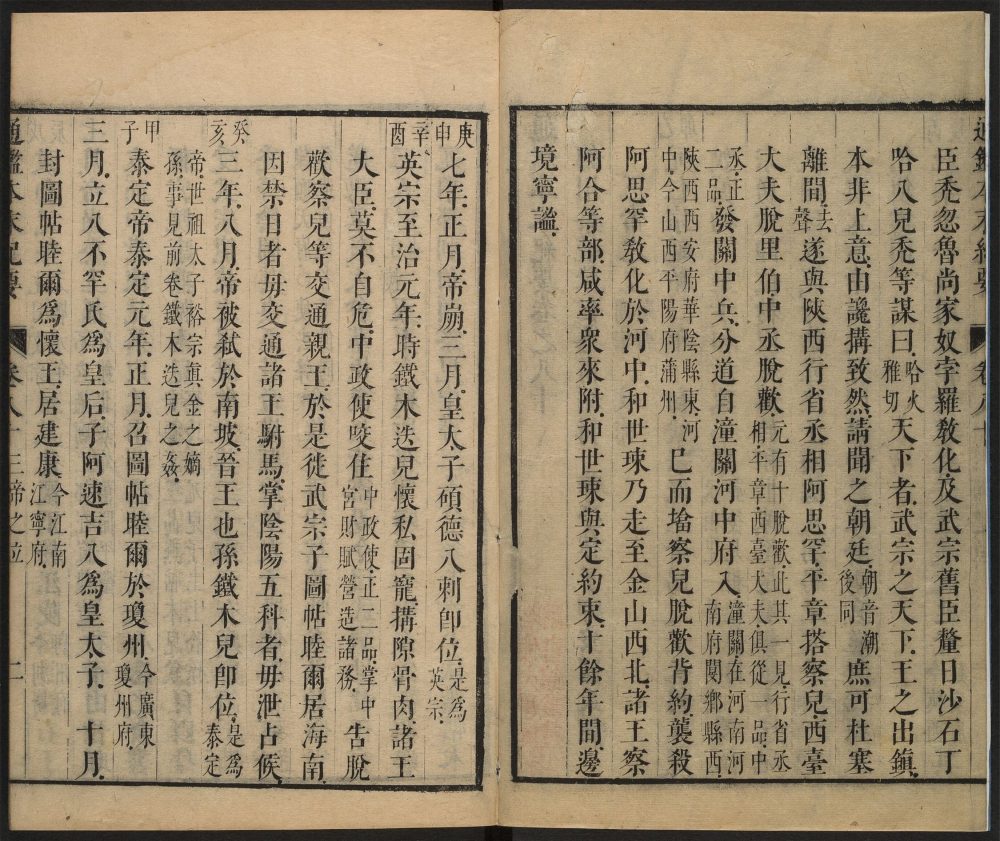 臣禿忽魯尚家奴孛羅敎化及武宗舊臣釐日沙石丁
哈八兒禿等謀曰哈火雅切天下者武宗之天下王之出鎮
本非上意由讒搆致然請聞之朝廷朝音潮後同庶可杜塞
離間去聲遂與陝西行省丞相阿思罕平章塔察兒西臺
大夫脫里伯中丞脫歡元有十脫歡此其一見行省丞相平章西臺大夫俱從一品中
丞正二品發關中兵分道自潼關河中府入潼關在河南河南府閿鄉縣西
陝西西安府華陰縣東河中今山西平陽府蒲州已而塔察兒脫歡背約襲殺
阿思罕敎化於河中和世㻋乃走至金山西北諸王察
阿合等部咸率衆來附和世㻋與定約束十餘年間邊
境寧謐
庚申七年正月帝崩三月皇太子碩德八剌卽位是爲英宗
辛酉英宗至治元年時鐵木迭兒懷私固寵搆隙骨肉諸王
大臣莫不自危中政使咬住中政使正二品掌中宮財賦營造諸務告脫
歡察兒等交通親王於是徙武宗子圖帖睦爾居海南
因禁日者毋交通諸王駙馬掌陰陽五科者毋泄占候
癸亥三年八月帝被弒於南坡晉王也孫鐵木兒卽位是爲泰定
帝世祖太子裕宗眞金之嫡孫事見前卷鐵木迭兒之姦
甲子泰定帝泰定元年正月召圖帖睦爾於瓊州今廣東瓊州府
三月立八不罕氏爲皇后子阿速吉八爲皇太子十月
封圖帖睦爾爲懷王居建康今江南江寧府
通鑑本末紀要 卷八十 三帝之位 二